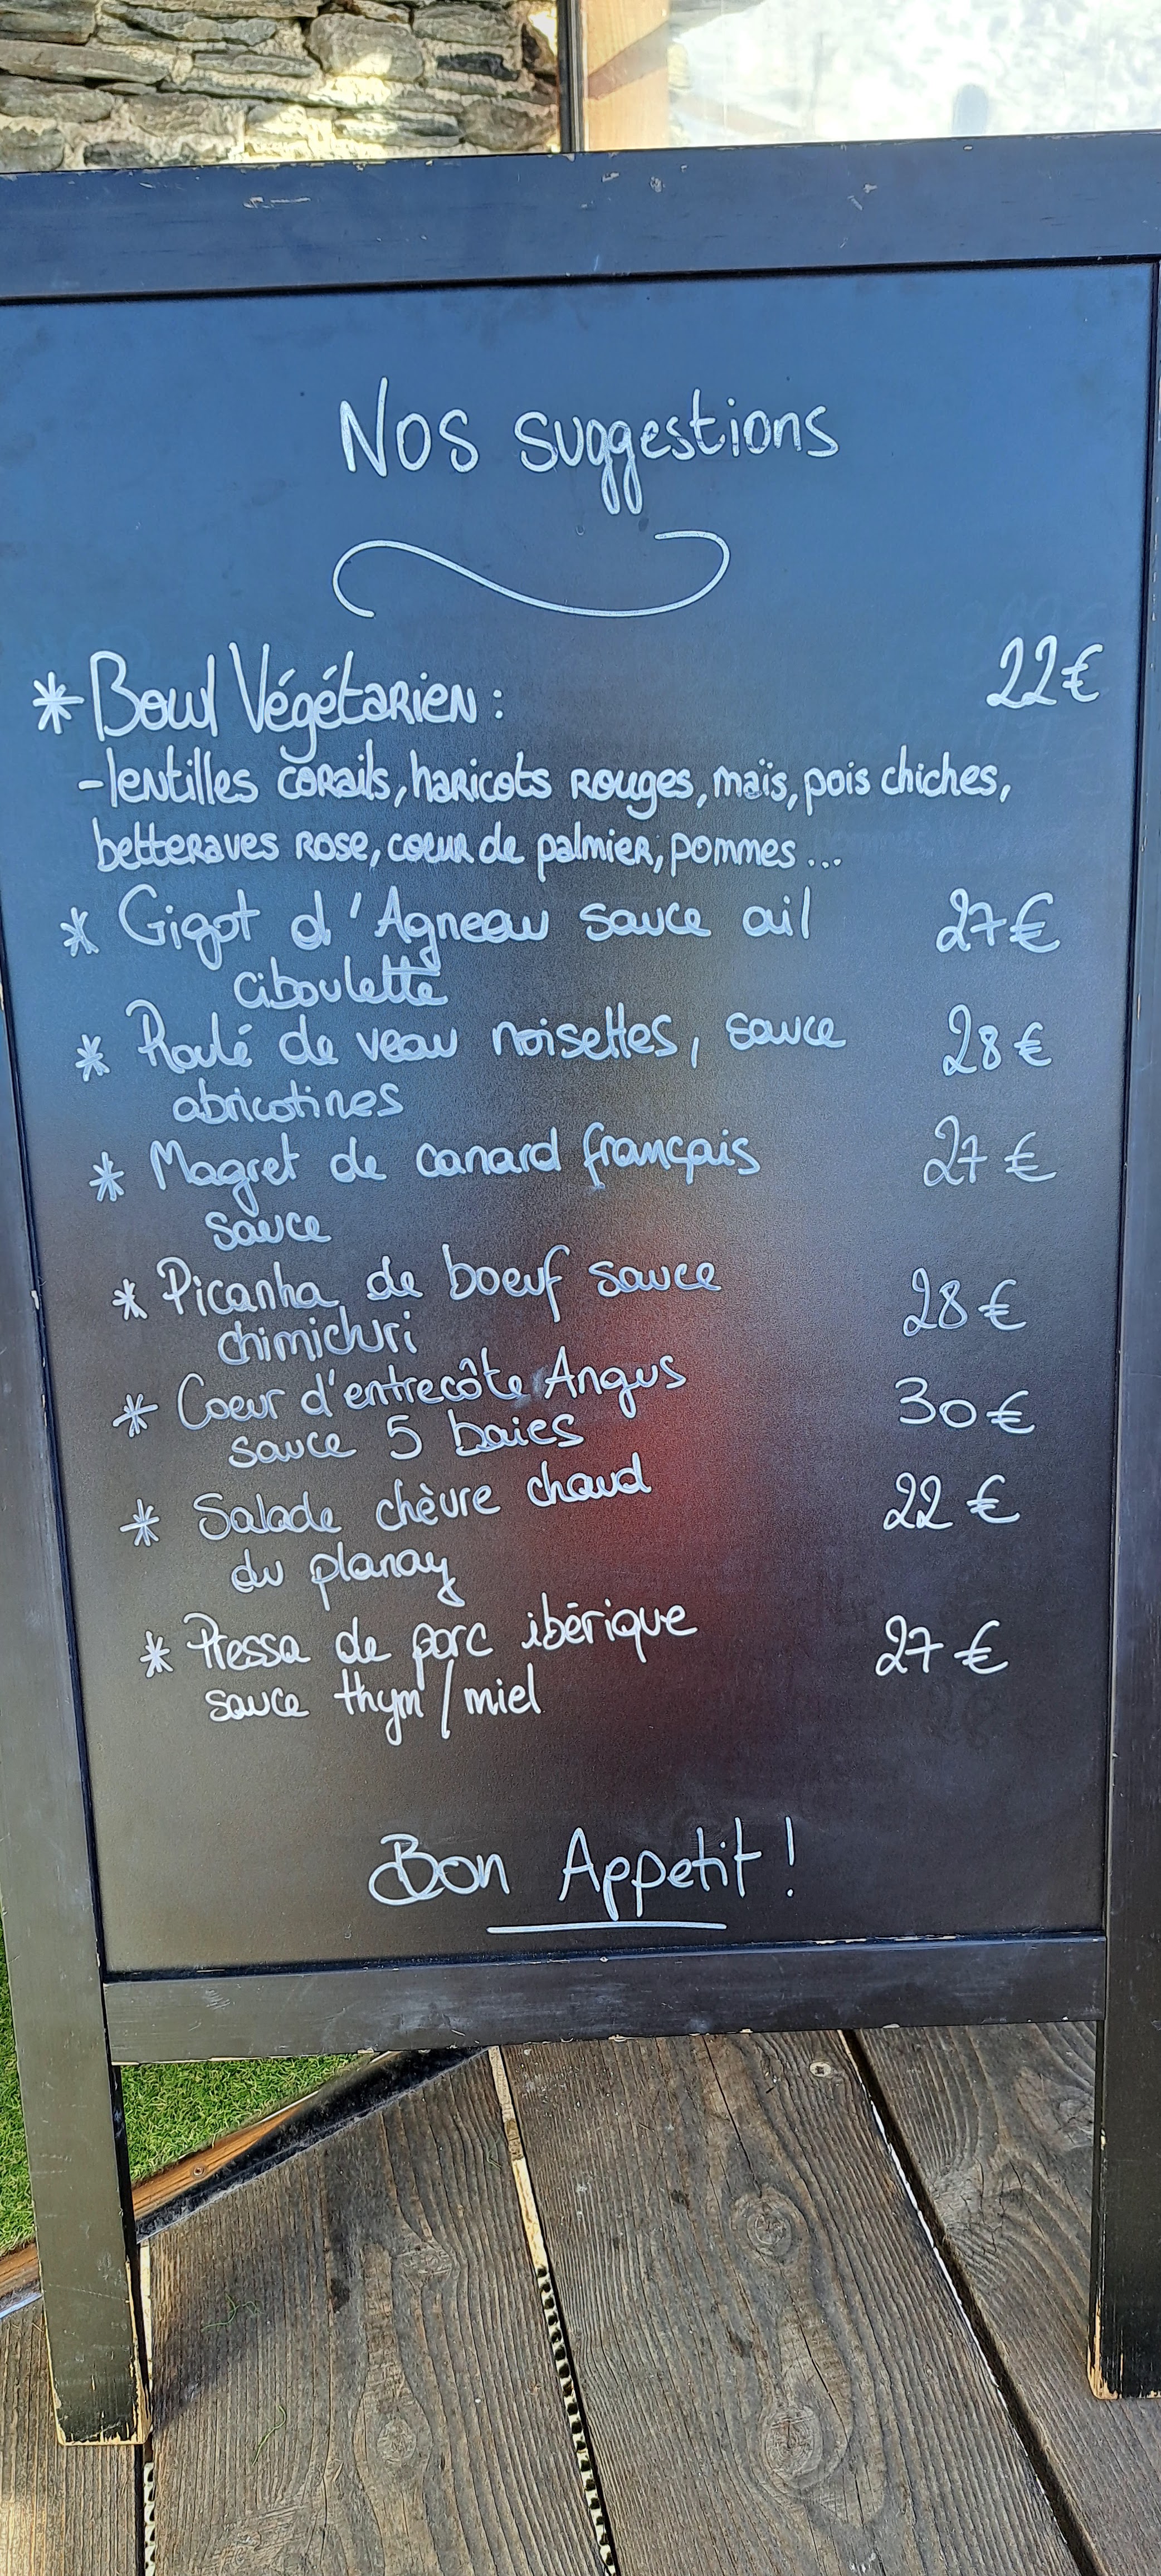 Nos suggestions
* Bowl Végétarien : 22€
- lentilles corails, haricots rouges, maïs, pois chiches,
betteraves rose, coeur de palmier, pommes ...
* Gigot d'Agneau sauce ail 27€
ciboulette
* Roulé de veau noisettes, sauce 28€
abricotines
* Magret de canard français 27€
sauce
* Picanha de boeuf sauce 28€
chimichuri
* Coeur d'entrecôte Angus 30€
sauce 5 baies
* Salade chèvre chaud 22€
du planay
* Pressa de porc ibérique 27€
sauce thym/miel
Bon Appetit !